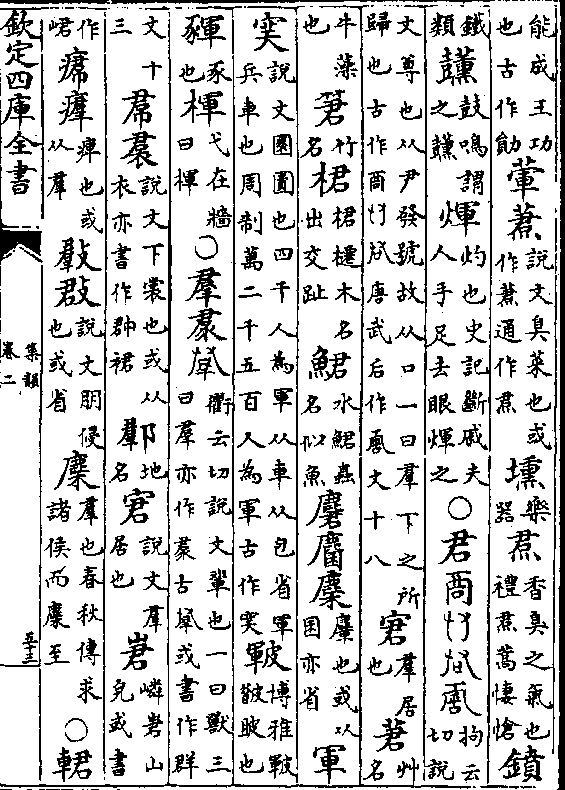 能成王功也古作勛葷說文臭菜也或作通作焄壎樂器焄香臭之氣也禮焄蒿悽愴鐼
鐵類鼓鳴謂之煇灼也史記斷戚夫人手足去眼煇之○君拘云切說
文尊也从尹發號故从口一曰羣下之所歸也古作唐武后作文十八宭羣居也莙艸名
牛藻也竹名桾桾櫏木名出交趾鮶水鮶蟲名似魚麏麕麇麞也或从囷亦省軍
說文圜圍也四千人為軍从車从包省軍兵車也周制萬二千五百人為軍古作皸博雅皸也
豕也楎弋在牆曰楎○羣衢云切說文輩也一曰獸三曰羣亦作古或書作群
文十三帬裠說文下裳也或从衣亦書作裙地名宭說文羣居也峮嶙峮山皃或書
作峮瘒痺也或从羣說文朋侵也或省麇羣也春秋傳求諸侯而麇至○輑
欽定四庫全書
集韻
卷二
五十三